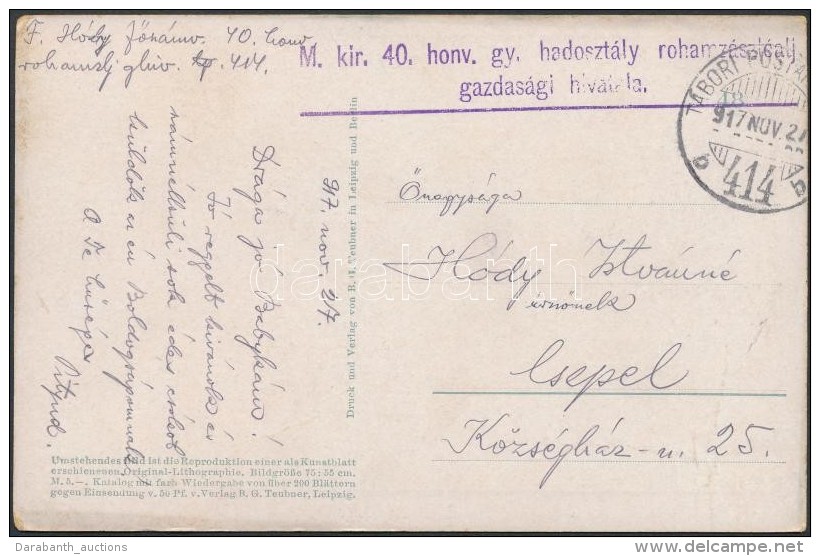 F. Hódy főhadn. 40. honv.
rohamzlj ghiv. tp. 414.
M. kir. 40. honv. gy. hadosztály rohamzászlóalj
gazdasági hivatala.
TÁBORI POSTAHIV
18
917 NOV. 27
b 414 b
917. nov. 27.
Drága jó Babykám!
Jó reggelt kivánok és
számnélküli sok édes csókot
küldök az én Boldogságomnak
a Te hűséges
Pityud.
Druck und Verlag von B. G. Teubner in Leipzig und Berlin
Őnagysága
Hódy Istvánné
úrnőnek
Csepel
Községház-u. 25.
Umstehendes Bild ist die Reproduktion einer als Kunstblatt
erschienenen Original-Lithographie. Bildgröße 75 : 55 cm.
M. 5.—. Katalog mit farb Wiedergabe von über 200 Blättern
gegen Einsendung v. 50 Pf. v. Verlag B. G. Teubner, Leipzig.
darabanth
Darabanth_auctions
delcampe.net